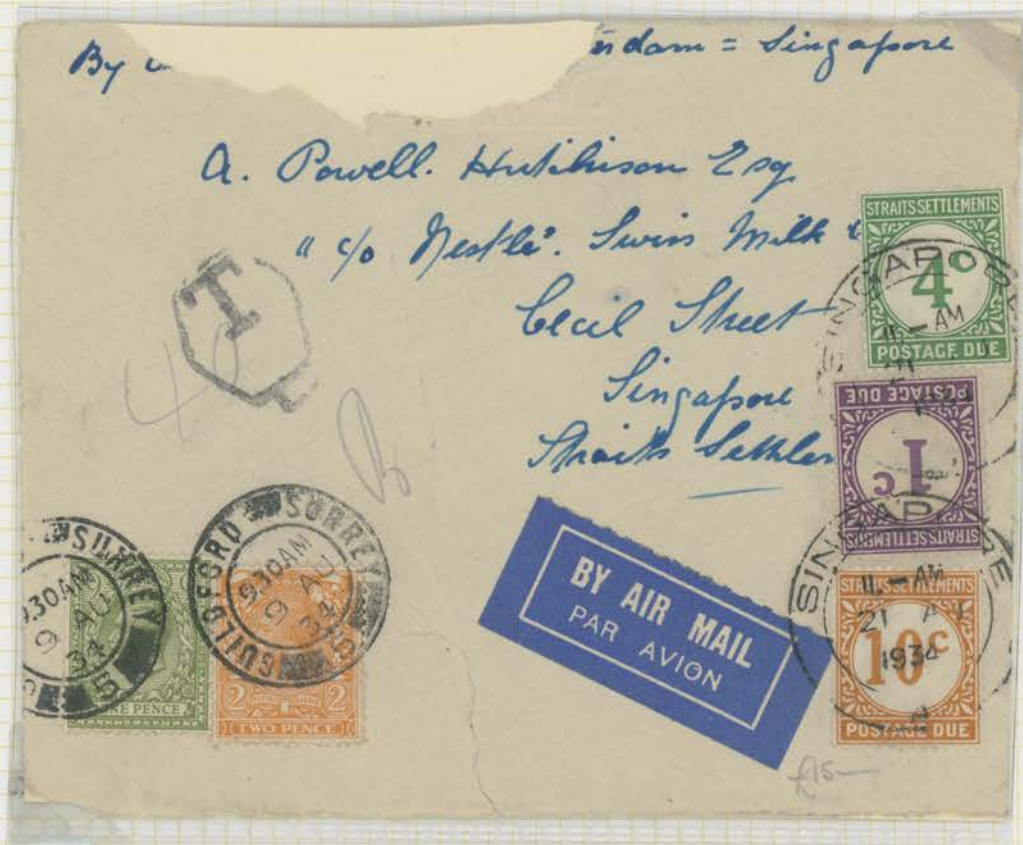 By
dam = Singapore
A. Powell. Hutchison Esq
" c/o Nestlé. Swiss Milk
Cecil Street
Singapore
Straits Settlem
T
40
STRAITS SETTLEMENTS
4c
POSTAGE DUE
SINGAPORE
11-AM
21
STRAITS SETTLEMENTS
1c
POSTAGE DUE
SINGAPORE
11-AM
21 AU
1934
STRAITS SETTLEMENTS
10c
POSTAGE DUE
BY AIR MAIL
PAR AVION
GUILDFORD SURREY
9.30AM
9 AU
34
2 2
TWO PENCE
SURREY
9.30AM
9 AU
34
NE PENCE
£15-